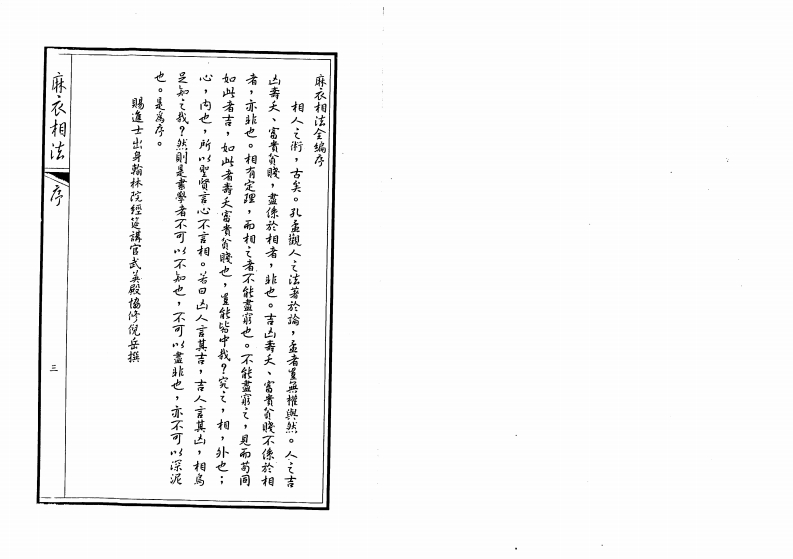 麻衣相法全編序
相人之術，古矣。孔孟觀人之法著於論，孟者豈無權輿然。人之吉
凶壽夭、富貴貧賤，盡係於相者，非也。吉凶壽夭、富貴貧賤不係於相
者，亦非也。相有定理，而相之者不能盡窮也。不能盡窮之，見而苟同
如此者吉，如此者壽夭富貴貧賤也，豈能皆中哉？究之，相，外也；
心，內也，所以聖賢言心不言相。若曰凶人言其吉，吉人言其凶，相烏
足知之哉？然則是書學者不可以不知也，不可以盡非也，亦不可以深泥
也。是為序。
賜進士出身翰林院經筵講官武英殿協修倪岳撰
麻衣相法
序
三